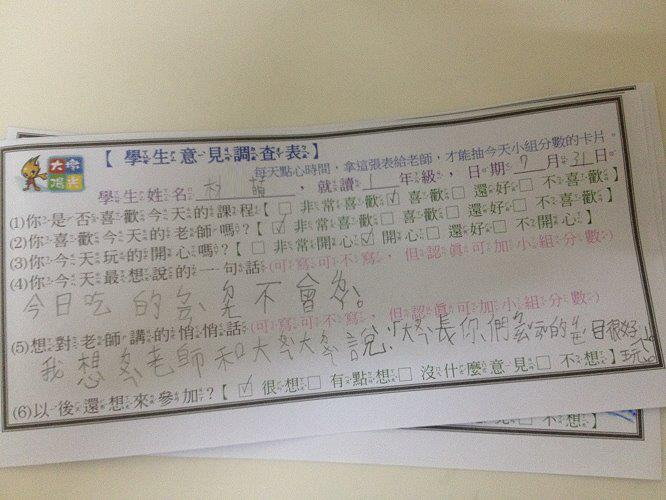 【 學生意見調查表】
每天點心時間，拿這張表給老師，才能抽今天小組分數的卡片。
學生姓名 ，就讀 1 年級，日期 7 月 31 日。
(1)你是否喜歡今天的課程【□ 非常喜歡☑ 喜歡□ 還好□ 不喜歡】
(2)你喜歡今天的老師嗎?【☑ 非常喜歡□ 喜歡□ 還好□ 不喜歡】
(3)你今天玩的開心嗎?【□ 非常開心☑ 開心□ 還好□ 不開心】
(4)你今天最想說的一句話(可寫可不寫，但認真可加小組分數)
今日吃的 不會
(5)想對老師講的悄悄話(可寫可不寫，但認真可加小組分數)
我想 老師和大 大 說 大 長你們 的 目很好玩
(6)以後還想來參加?【☑ 很想□ 有點想□ 沒什麼意見□ 不想】
不想】